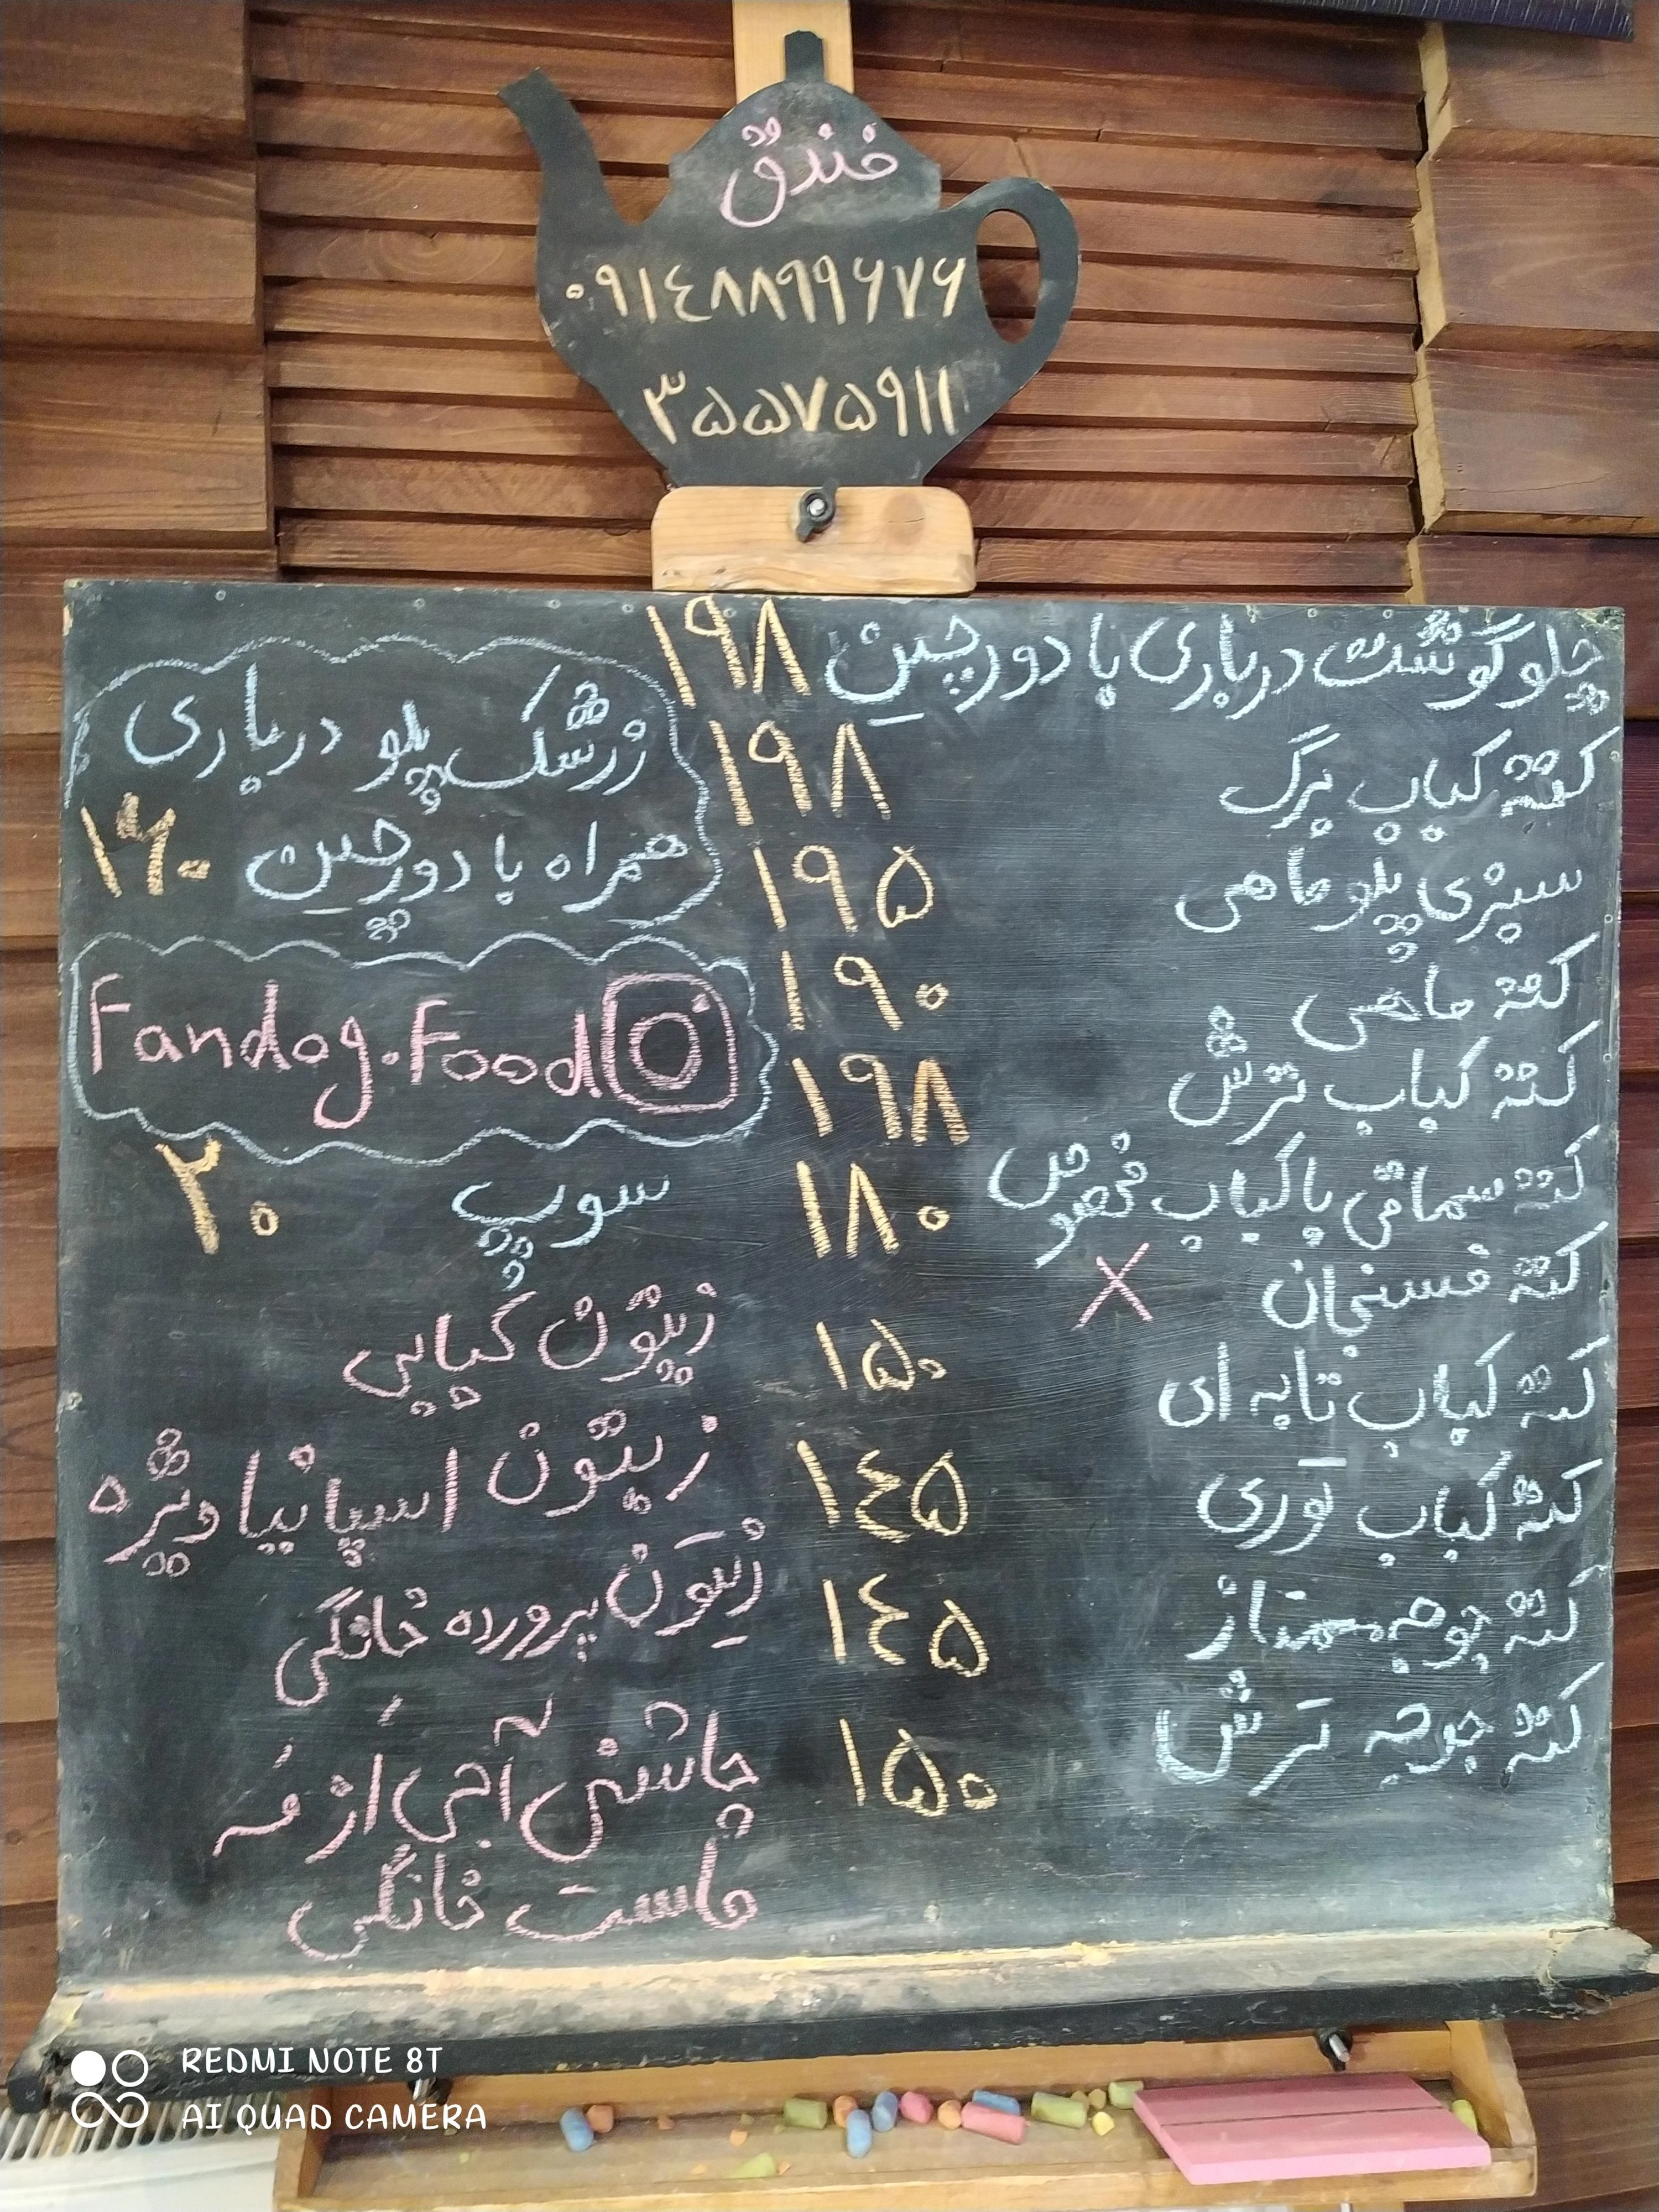 فندق
۰۹۱۴۸۸۹۹۶۷۶
۳۵۵۷۵۹۱۱
چلو گوشت درباری با دورچین ۱۹۸
کته کباب برگ ۱۹۸
سبزی پلو ماهی ۱۹۵
کته ماهی ۱۹۰
کته کباب ترش ۱۹۸
کته سماقی با کباب مخصوص ۱۸۰
کته فسنجان X
کته کباب تابه ای ۱۵۰
کته کباب توری ۱۴۵
کته جوجه ممتاز ۱۴۵
کته جوجه ترش ۱۵۰
زرشک پلو درباری
همراه با دورچین ۱۶۰
Fandog.Food
سوپ ۲۰
زیتون کبابی
زیتون اسپانیا ویژه
زیتون پرورده خانگی
چاشنی آجی از مه
ماست خانگی
REDMI NOTE 8T
AI QUAD CAMERA